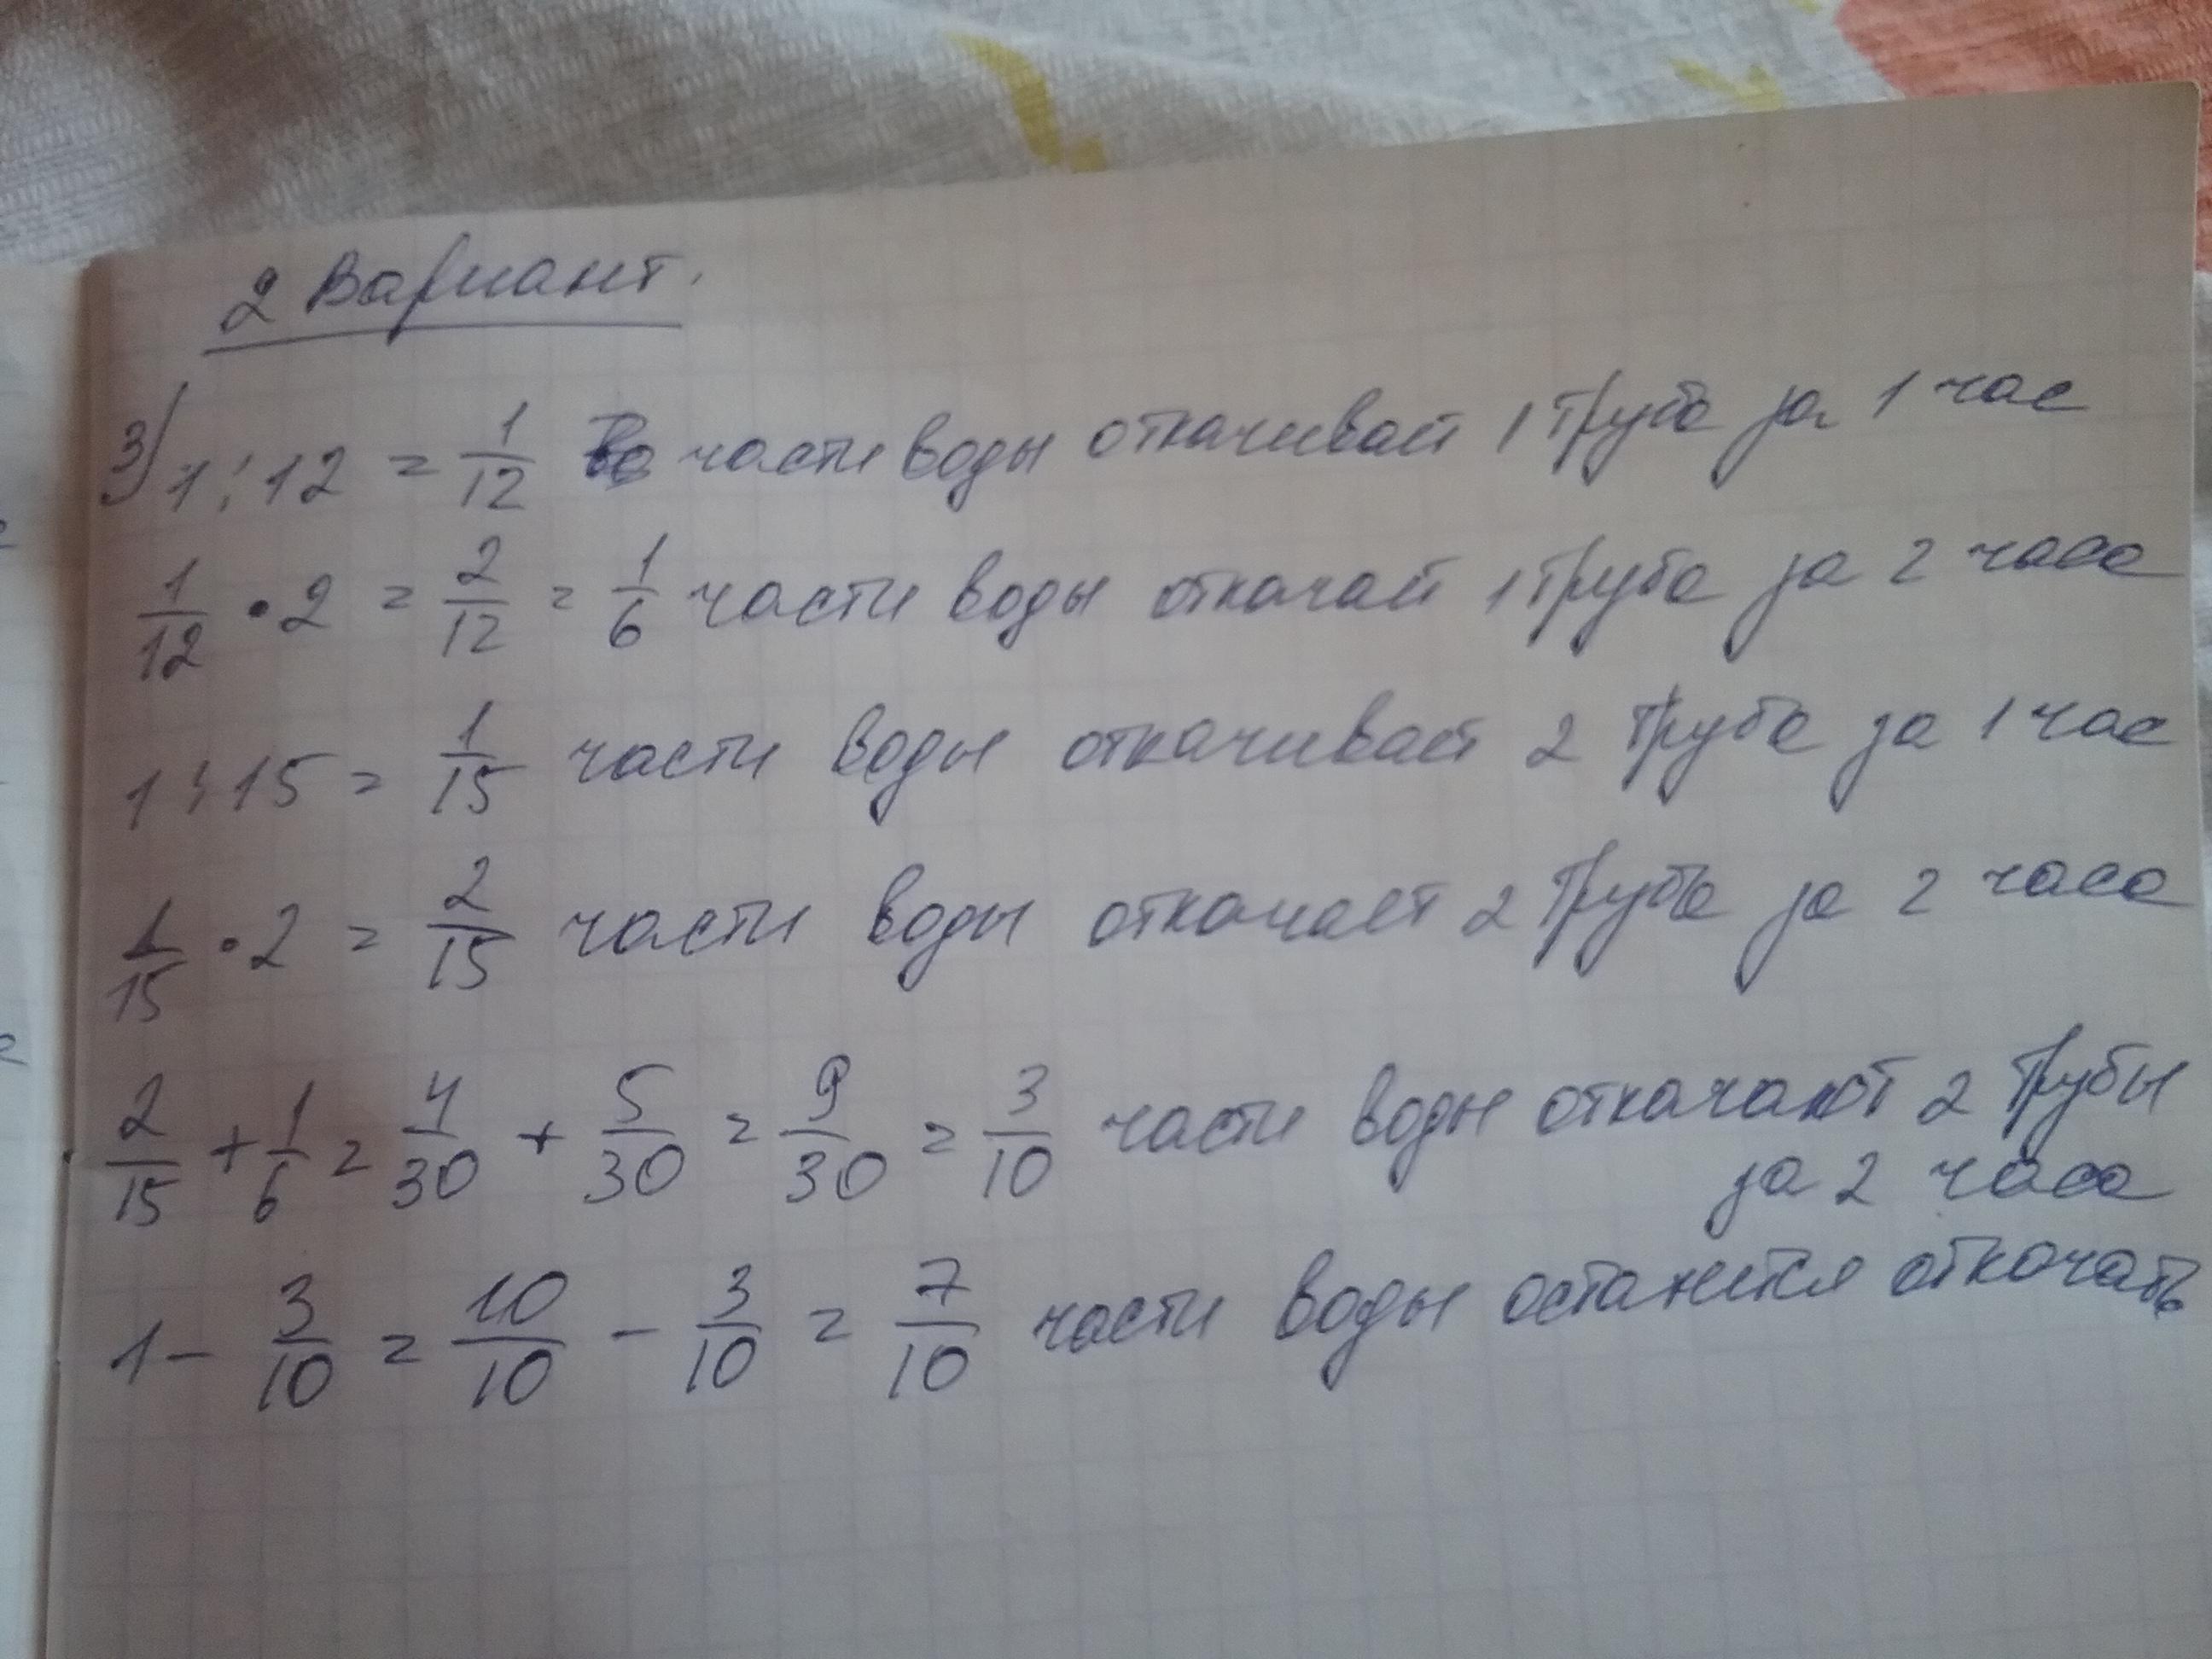 2 Вариант.
3) 1 : 12 = 1/12 части воды откачивает 1 труба за 1 час
1/12 • 2 = 2/12 = 1/6 части воды откачает 1 труба за 2 часа
1 : 15 = 1/15 части воды откачивает 2 труба за 1 час
1/15 • 2 = 2/15 части воды откачает 2 труба за 2 часа
2/15 + 1/6 = 4/30 + 5/30 = 9/30 = 3/10 части воды откачают 2 трубы
за 2 часа
1 - 3/10 = 10/10 - 3/10 = 7/10 части воды останется откачать